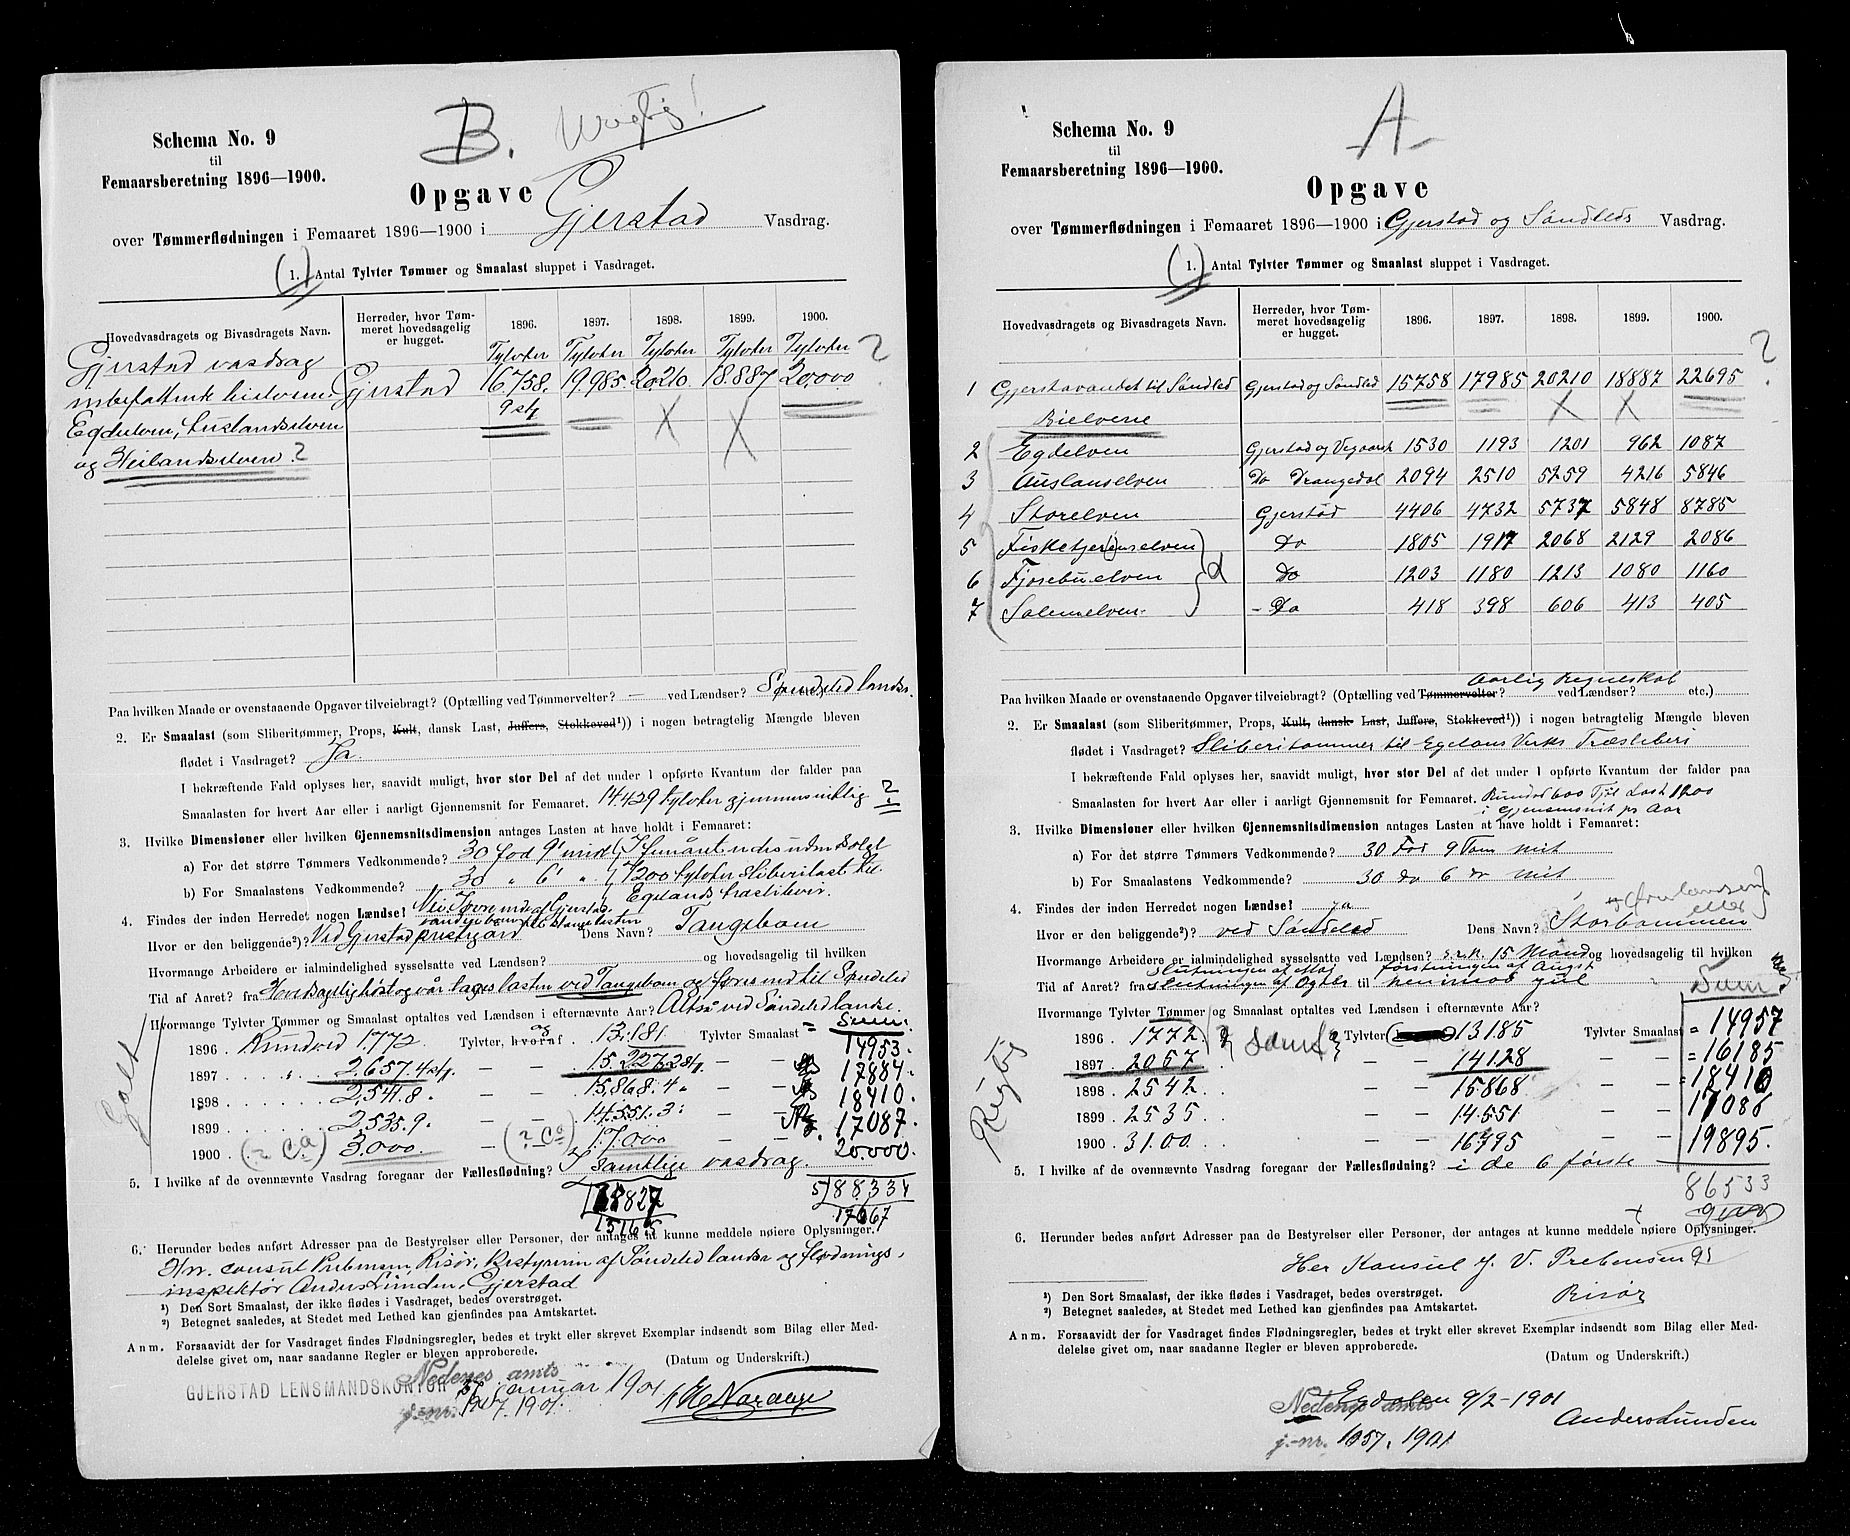 B. Urigtig!
Schema No. 9
til
Femaarsberetning 1896—1900.
Opgave
over Tømmerflødningen i Femaaret 1896—1900 i Gjerstad Vasdrag.
(1.) Antal Tylvter Tømmer og Smaalast sluppet i Vasdraget.
Hovedvasdragets og Bivasdragets Navn. Herreder, hvor Tømmeret hovedsagelig er hugget. 1896. 1897. 1898. 1899. 1900.
Tylvter Tylvter Tylvter Tylvter Tylvter ?
Gjerstad vasdrag
indbefattende bielvene Gjerstad 16.758. 19.985. 20210. 18.887 20.000
9 st
Egdelven,
og Heilandselven ?
Paa hvilken Maade er ovenstaaende Opgaver tilveiebragt? (Optælling ved Tømmervelter? — ved Lændser? Søndeled landse.
2. Er Smaalast (som Sliberitømmer, Props, Kult, dansk Last, Juffers, Stokkeved¹)) i nogen betragtelig Mængde bleven
flødet i Vasdraget? Ja
I bekræftende Fald oplyses her, saavidt muligt, hvor stor Del af det under 1 opførte Kvantum der falder paa
Smaalasten for hvert Aar eller i aarligt Gjennemsnit for Femaaret. 14429 tylvter gjennemsnitlig ?
3. Hvilke Dimensioner eller hvilken Gjennemsnitsdimension antages Lasten at have holdt i Femaaret:
a) For det større Tømmers Vedkommende? 30 fod 9" midt
b) For Smaalastens Vedkommende? 30 " 6" " 7200 tylvter sliberilast til
Egelands træsliberi.
4. Findes der inden Herredet nogen Lændse?
Hvor er den beliggende²)? Ved Gjerstad prestegård Dens Navn? Tangebom
Hvormange Arbeidere er ialmindelighed sysselsatte ved Lændsen? og hovedsagelig til hvilken
Tid af Aaret? fra Hovedsagelig høst og vår lages lasten ved Tangebom og føres ind til Søndeled
Hvormange Tylvter Tømmer og Smaalast optaltes ved Lændsen i efternævnte Aar? Altså ved Søndeled landse.
Galt
1896 Rundved 1.772. Tylvter, hvoraf og 13.181. Tylvter Smaalast = Sum: 14953.
1897 " 2.657. 4 st. — — 15.227. 2 st. — — 17884.
1898 2.541. 8. — — 15.868. 4. — — 18410.
1899 2.535. 9. — — 14.551. 3. — — 17087.
1900 (? Ca) 3.000. — (? Ca) 17.000 — 20.000.
5. I hvilke af de ovennævnte Vasdrag foregaar der Fællesflødning? I samtlige vasdrag.
827 5) 88334
15165 17667
6. Herunder bedes anført Adresser paa de Bestyrelser eller Personer, der antages at kunne meddele nøiere Oplysninger.
Hr. consul Prebensen, Risør, bestyreren af Søndeled landse og flødnings-
inspektør Anders Lunden, Gjerstad
¹) Den Sort Smaalast, der ikke flødes i Vasdraget, bedes overstrøget.
²) Betegnet saaledes, at Stedet med Lethed kan gjenfindes paa Amtskartet.
Anm. Forsaavidt der for Vasdraget findes Flødningsregler, bedes et trykt eller skrevet Exemplar indsendt som Bilag eller Meddelelse givet om, naar saadanne Regler er bleven approberede.
(Datum og Underskrift.)
Nedenes amts
GJERSTAD LENSMANDSKONTOR januar 1901
j.-nr. 1901.
A
Schema No. 9
til
Femaarsberetning 1896—1900.
Opgave
over Tømmerflødningen i Femaaret 1896—1900 i Gjerstad og Søndleds Vasdrag.
(1.) Antal Tylvter Tømmer og Smaalast sluppet i Vasdraget.
Hovedvasdragets og Bivasdragets Navn. Herreder, hvor Tømmeret hovedsagelig er hugget. 1896. 1897. 1898. 1899. 1900.
?
1 Gjerstavandet til Søndled Gjerstad og Søndled 15758 17985 20210 18887 22695
Bielvene
2 Egdelven Gjerstad og Vegaarsh 1530 1193 1201 962 1087
3 Auslanselven Do Drangedal 2094 2510 5259 4216 5846
4 Storelven Gjerstad 4406 4732 5737 5848 8785
5 Fisketjernselven Do 1805 1917 2068 2129 2086
6 Fjosebuelven Do 1203 1180 1213 1080 1160
7 Solemelven - Do 418 398 606 413 405
Aarlig Regnskab
Paa hvilken Maade er ovenstaaende Opgaver tilveiebragt? (Optælling ved Tømmervelter? ved Lændser? etc.)
2. Er Smaalast (som Sliberitømmer, Props, Kult, dansk Last, Juffers, Stokkeved¹)) i nogen betragtelig Mængde bleven
flødet i Vasdraget? Sliberitømmer til Egelans Verks Træsliberi
I bekræftende Fald oplyses her, saavidt muligt, hvor stor Del af det under 1 opførte Kvantum der falder paa
Smaalasten for hvert Aar eller i aarligt Gjennemsnit for Femaaret. Last 1200
i Gjensmsnit pr Aar
3. Hvilke Dimensioner eller hvilken Gjennemsnitsdimension antages Lasten at have holdt i Femaaret:
a) For det større Tømmers Vedkommende? 30 Fod 9 Tom mit
b) For Smaalastens Vedkommende? 30 do 6 do mit
4. Findes der inden Herredet nogen Lændse? ja
Hvor er den beliggende²)? ved Søndeled Dens Navn? Storbommen
Hvormange Arbeidere er ialmindelighed sysselsatte ved Lændsen? 15 Mand og hovedsagelig til hvilken
slutningen af Maj førstningen af Augst
Tid af Aaret? fra slutningen af Ogtbr til henimod jul
Hvormange Tylvter Tømmer og Smaalast optaltes ved Lændsen i efternævnte Aar? Sum
Rigtig
1896 1772 Tylvter 13185 Tylvter Smaalast = 14957
1897 2057 — — 14128 — — = 16185
1898 2542 — — 15868 — — = 18410
1899 2535 — — 14551 — — 17086
1900 3100 — — 16795 — — 19895.
5. I hvilke af de ovennævnte Vasdrag foregaar der Fællesflødning? i de 6 første
86533
6. Herunder bedes anført Adresser paa de Bestyrelser eller Personer, der antages at kunne meddele nøiere Oplysninger.
Her Konsul J. V. Prebensen
Risør
¹) Den Sort Smaalast, der ikke flødes i Vasdraget, bedes overstrøget.
²) Betegnet saaledes, at Stedet med Lethed kan gjenfindes paa Amtskartet.
Anm. Forsaavidt der for Vasdraget findes Flødningsregler, bedes et trykt eller skrevet Exemplar indsendt som Bilag eller Meddelelse givet om, naar saadanne Regler er bleven approberede.
(Datum og Underskrift.)
Egdalen 9/2-1901
Nedenes amts
Anders Lunden
j.-nr. 1057. 1901